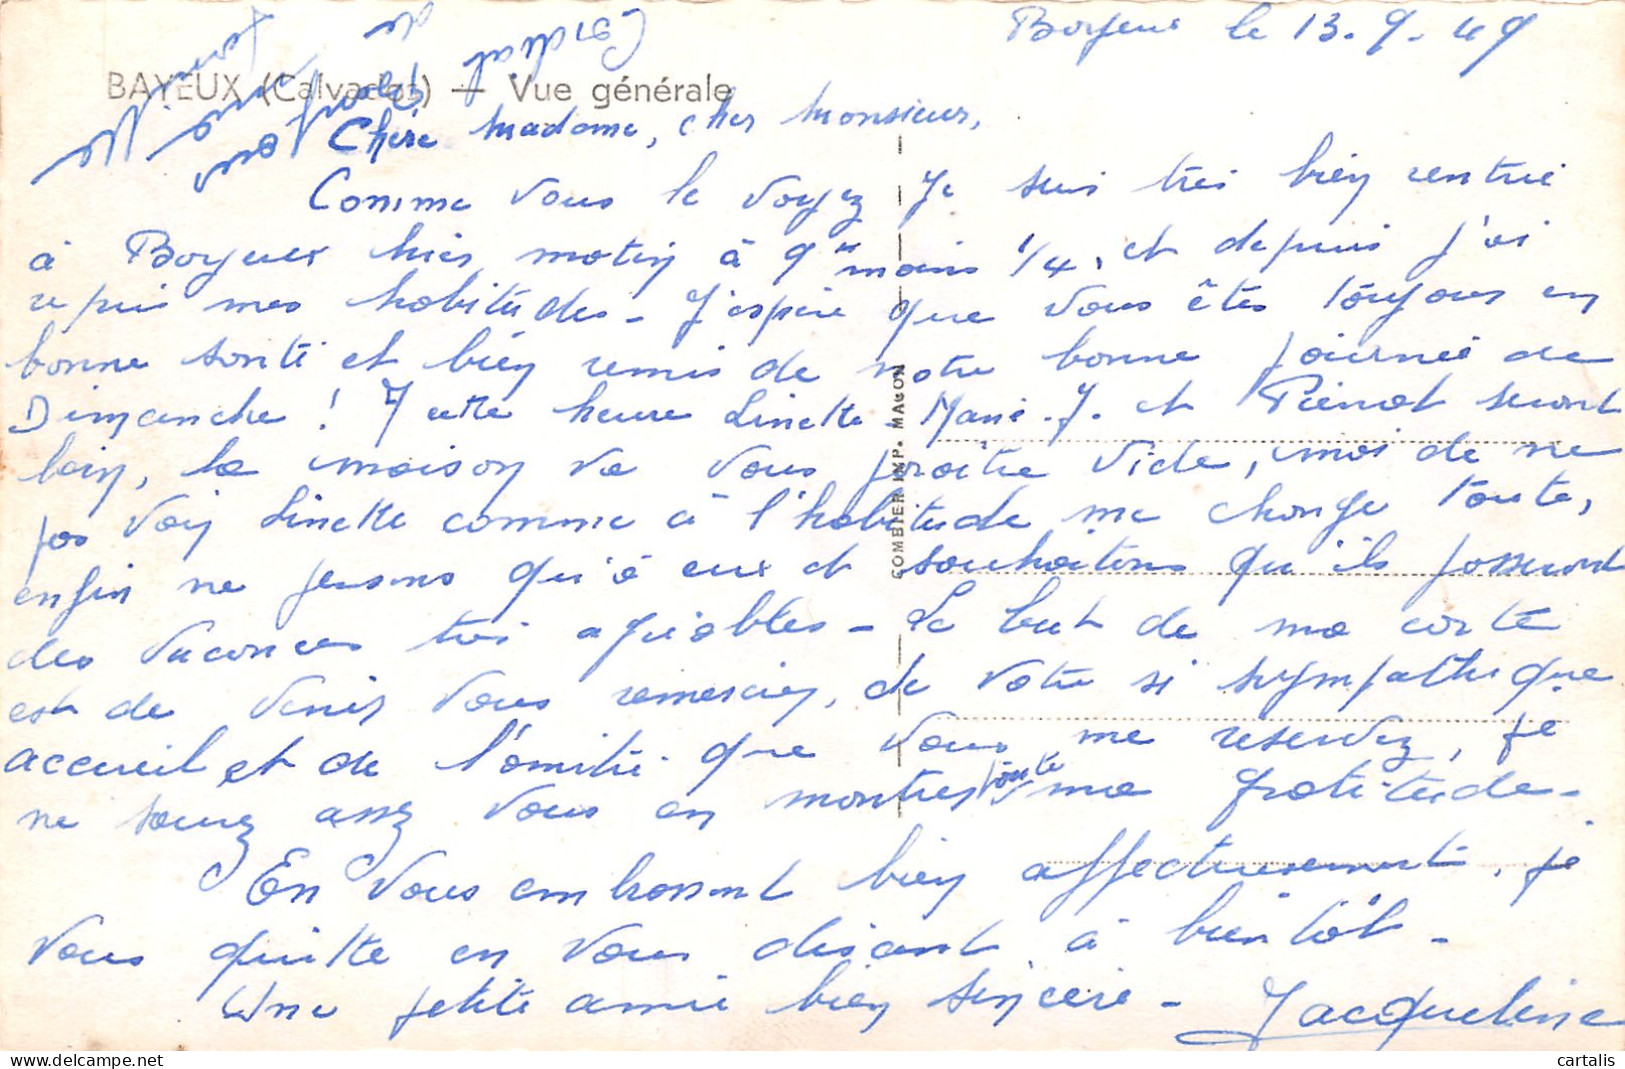 Bayeux le 13.9.49
BAYEUX (Calvados) — Vue générale
Chère Madame, cher Monsieur,
Comme vous le voyez je suis très bien rentrée
à Bayeux hier matin à 9h moins 1/4, et depuis j'ai
repris mes habitudes - J'espère que vous êtes toujours en
bonne santé et bien remis de notre bonne journée de
Dimanche ! à cette heure Linette Marie-J. et Pierrot seront
loin, la maison va vous paraître vide, moi de ne
pas voir Linette comme à l'habitude me change toute,
enfin ne pensons qu'à eux et souhaitons qu'ils passeront
des vacances très agréables - Le but de ma carte
est de venir vous remercier, de votre si sympathique
accueil et de l'amitié que vous me réservez, je
ne saurez assez vous en montrer toute ma gratitude -
En vous embrassant bien affectueusement, je
vous quitte en vous disant à bientôt -
Une petite amie bien sincère - Jacqueline
Cordial
de
COMBIER IMP. MACON